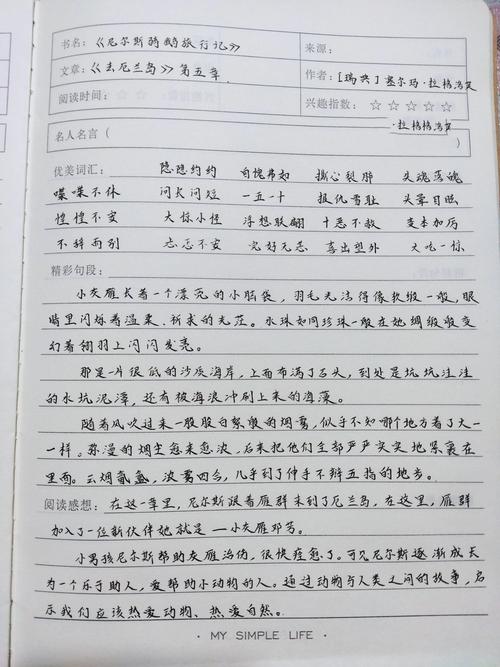 书名：《尼尔斯骑鹅旅行记》
来源：
文章：《去厄兰岛》第五章
作者：[瑞典]塞尔玛·拉格洛芙
阅读时间：☆ ☆ ☆
兴趣指数：☆ ☆ ☆ ☆ ☆
·拉格洛芙
名人名言（
优美词汇： 隐隐约约 自愧弗如 撕心裂肺 失魂落魄
喋喋不休 问长问短 一五一十 报仇雪耻 头晕目眩
惶惶不安 大惊小怪 浮想联翩 十恶不赦 变本加厉
不辞而别 忐忑不安 完好无恙 喜出望外 大吃一惊
精彩句段：
小灰雁长着一个漂亮的小脑袋，羽毛光洁得像软缎一般，眼
睛里闪烁着温柔、祈求的光茫。水珠如同珍珠一般在她绸缎般变
幻着翎羽上闪闪发亮。
那是一片很低的沙质海岸，上面布满了石头，到处是坑坑洼洼
的水坑泥潭，还有被海浪冲刷上来的海藻。
随着风吹过来一股股白絮般的烟雾，似乎不知哪个地方着了火一
一样。弥漫的烟尘愈来愈浓，后来把他们全部严严实实地裹在
里面。云烟氤氲，浓雾四合，几乎到了伸手不辨五指的地步。
阅读感想：在这一章里，尼尔斯跟着雁群来到了厄兰岛，在这里，雁群
加入了一位新伙伴她就是——小灰雁邓芬。
小男孩尼尔斯帮助灰雁治伤，很快痊愈了。可见尼尔斯逐渐成长
为一个乐于助人，爱帮助小动物的人。通过动物与人类之间的故事，启
示我们应该热爱动物、热爱自然。
· MY SIMPLE LIFE ·